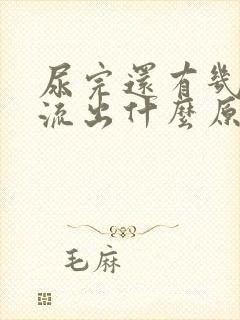 尿完還有幾
流出什麼原
毛麻